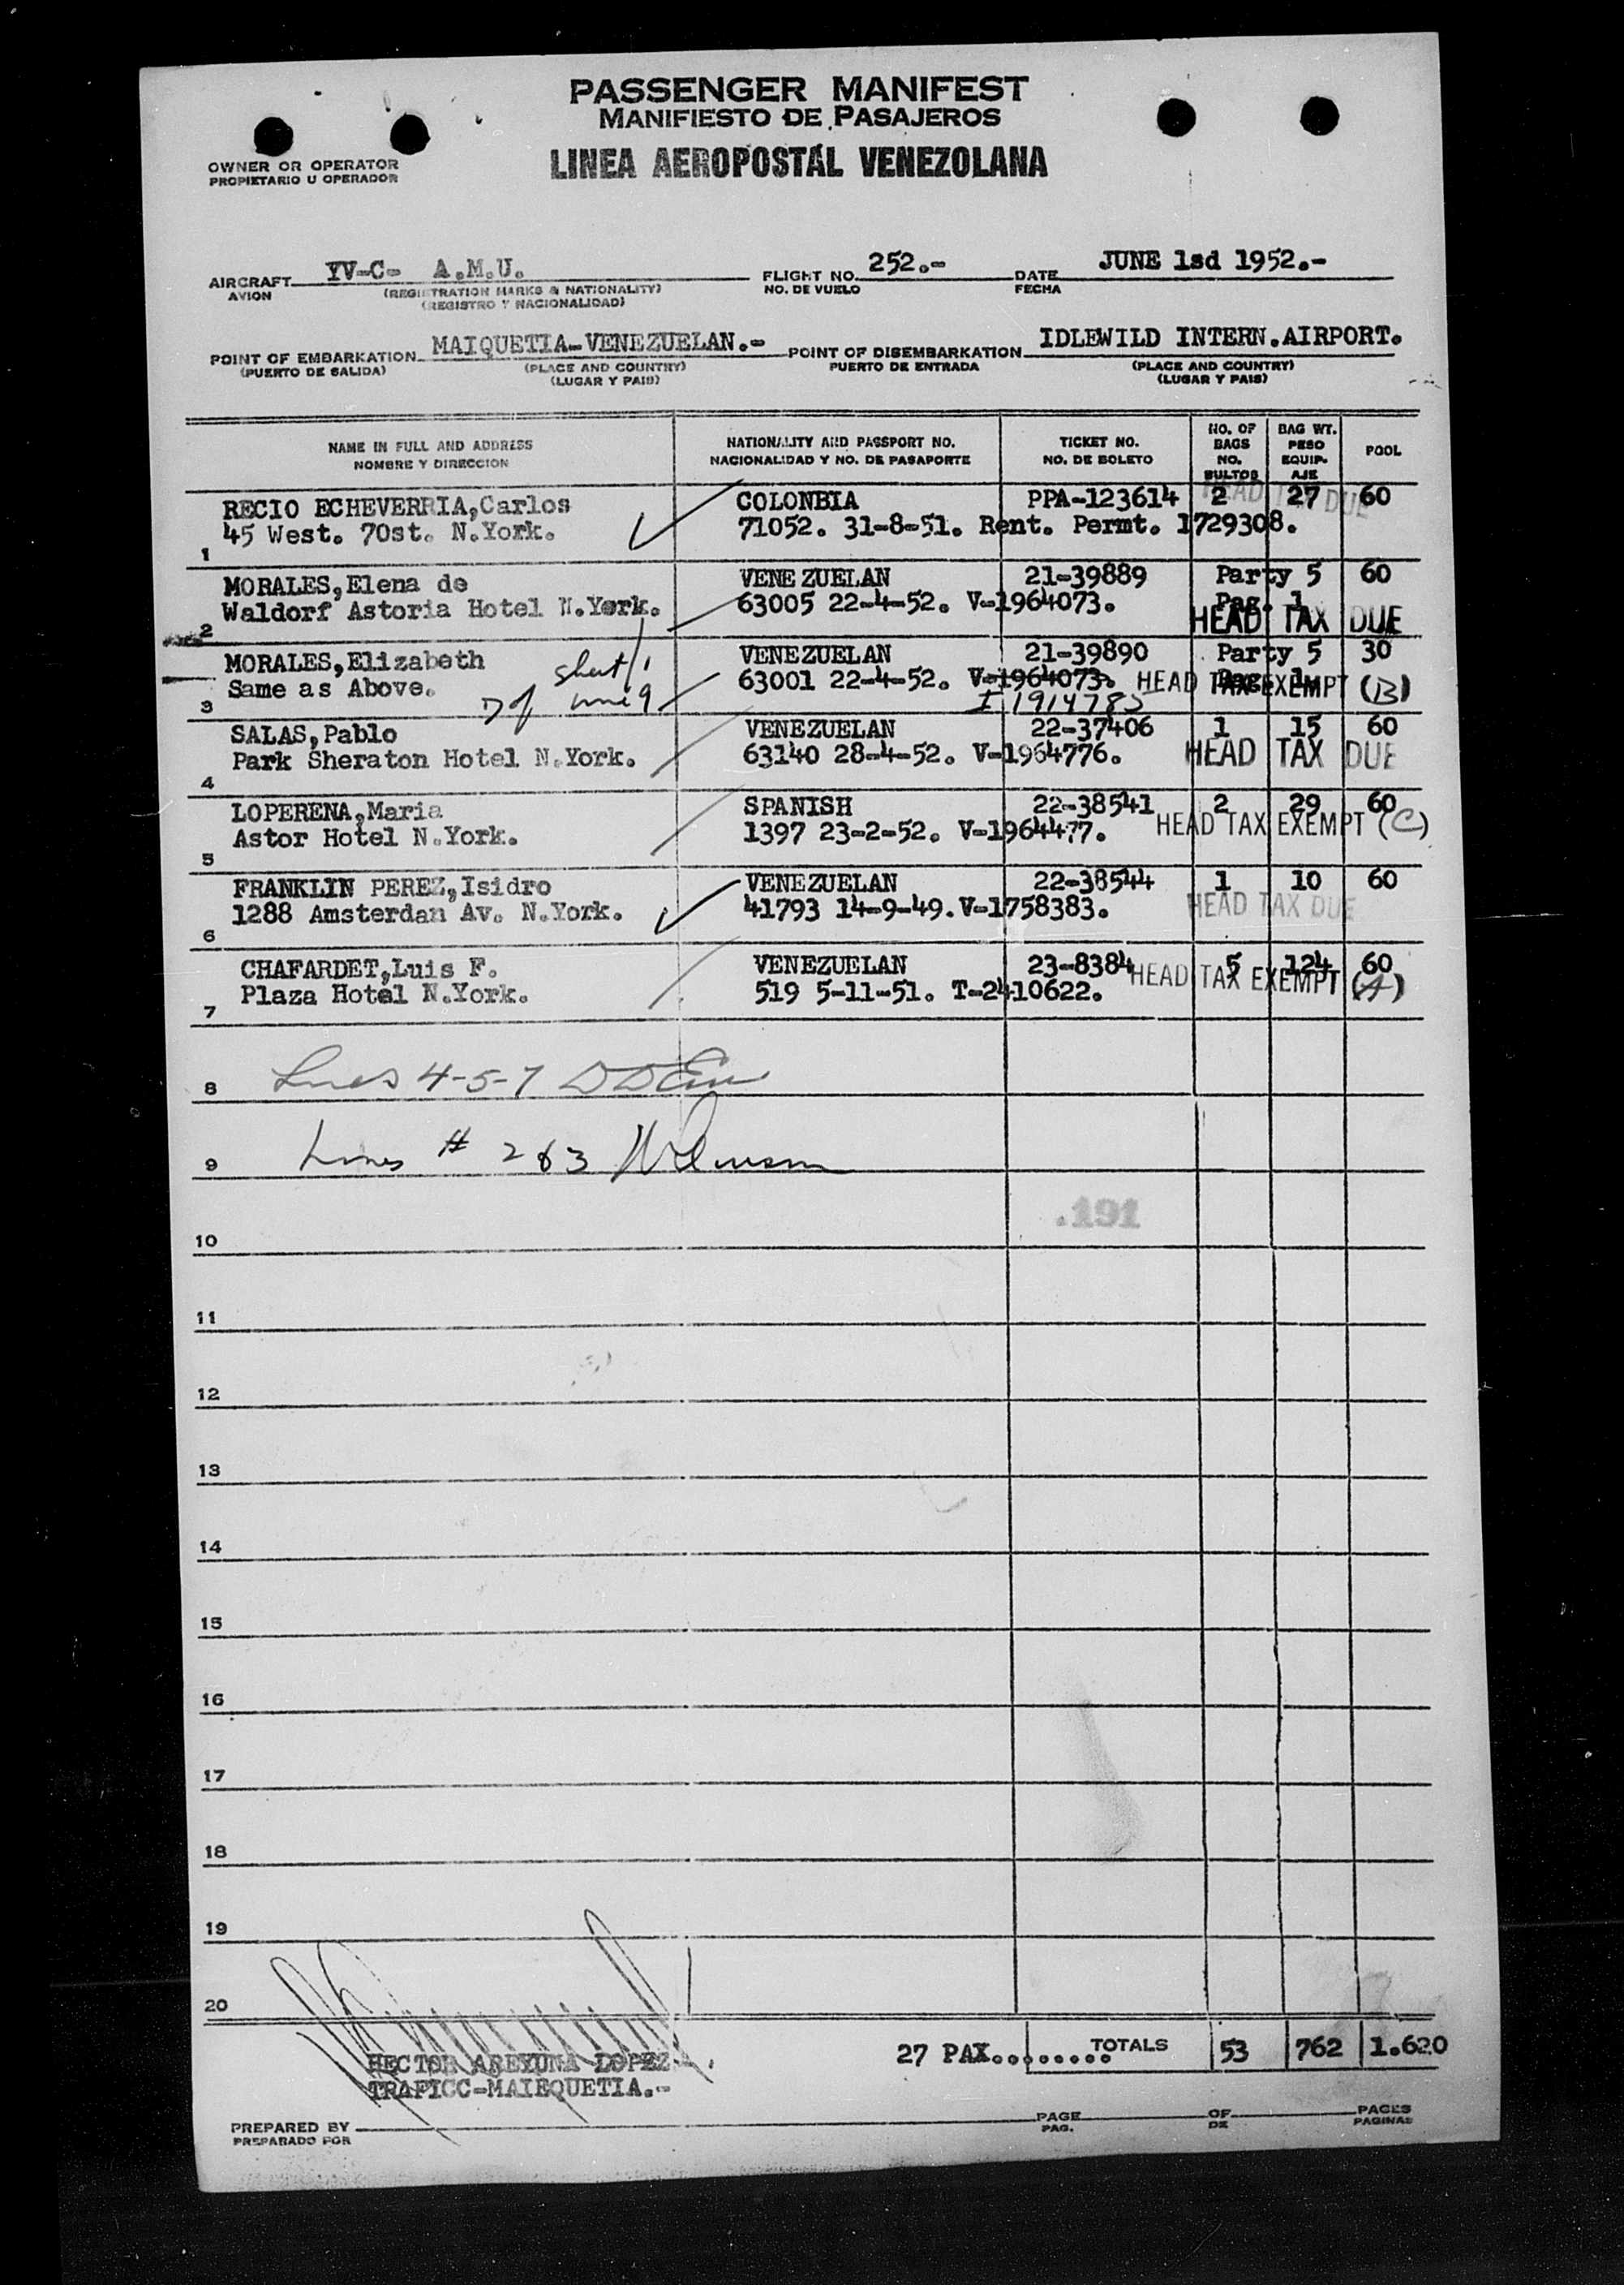 PASSENGER MANIFEST
MANIFIESTO DE PASAJEROS
OWNER OR OPERATOR
PROPIETARIO U OPERADOR
LINEA AEROPOSTAL VENEZOLANA
AIRCRAFT YV-C- A.M.U. FLIGHT NO. 252.- DATE JUNE 1sd 1952.-
AVION (REGISTRATION MARKS & NATIONALITY) NO. DE VUELO FECHA
(REGISTRO Y NACIONALIDAD)
POINT OF EMBARKATION MAIQUETIA-VENEZUELAN.- POINT OF DISEMBARKATION IDLEWILD INTERN.AIRPORT.
(PUERTO DE SALIDA) (PLACE AND COUNTRY) PUERTO DE ENTRADA (PLACE AND COUNTRY)
(LUGAR Y PAIS) (LUGAR Y PAIS)
NAME IN FULL AND ADDRESS NATIONALITY AND PASSPORT NO. TICKET NO. NO. OF BAGS BAG WT. POOL
NOMBRE Y DIRECCION NACIONALIDAD Y NO. DE PASAPORTE NO. DE BOLETO NO. BULTOS PESO EQUIP-AJE
RECIO ECHEVERRIA,Carlos COLONBIA PPA-123614 2 27 60
HEAD TAX DUE
45 West. 70st. N.York. 71052. 31-8-51. Rent. Permt. 1729308.
1
MORALES,Elena de VENEZUELAN 21-39889 Party 5 60
Waldorf Astoria Hotel N.York. 63005 22-4-52. V-1964073. Pag. 1
HEAD TAX DUE
2
MORALES,Elizabeth VENEZUELAN 21-39890 Party 5 30
sheet 1
Same as Above. 63001 22-4-52. V-1964073. Pag. 1
HEAD TAX EXEMPT (B)
3 D of line 9 I 1914785
SALAS,Pablo VENEZUELAN 22-37406 1 15 60
Park Sheraton Hotel N.York. 63140 28-4-52. V-1964776. HEAD TAX DUE
4
LOPERENA,Maria SPANISH 22-38541 2 29 60
Astor Hotel N.York. 1397 23-2-52. V-1964477. HEAD TAX EXEMPT (C)
5
FRANKLIN PEREZ,Isidro VENEZUELAN 22-38544 1 10 60
1288 Amsterdan Av. N.York. 41793 14-9-49.V-1758383. HEAD TAX DUE
6
CHAFARDET,Luis F. VENEZUELAN 23-8384 5 124 60
HEAD TAX EXEMPT (A)
Plaza Hotel N.York. 519 5-11-51. T-2410622.
7
8 Lines 4-5-7
9 Lines # 2&3
.191
10
11
12
13
14
15
16
17
18
19
20
27 PAX......... TOTALS 53 762 1.620
HECTOR AREXUNA LOPEZ.
TRAFICC-MAIEQUETIA.-
PREPARED BY PAGE OF PAGES
PREPARADO POR PAG. DE PAGINAS